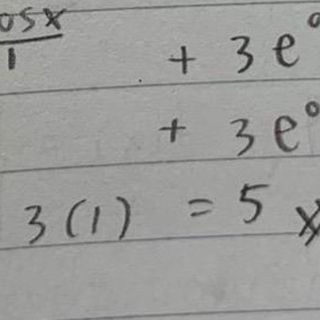 osx/1 + 3e⁰
+ 3e⁰
3(1) = 5